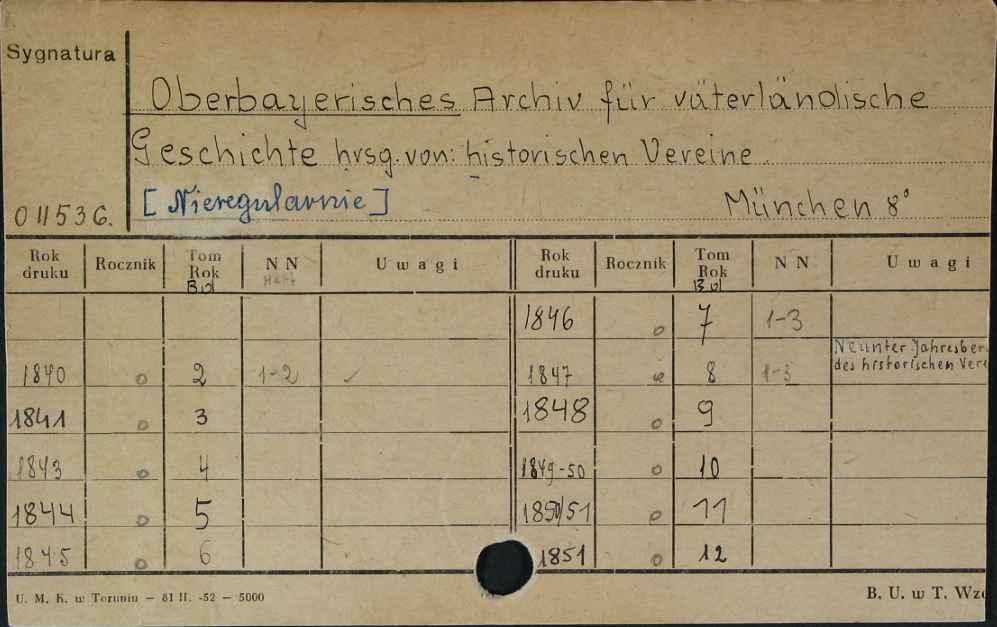 Sygnatura
Oberbayerisches Archiv für väterländische
Geschichte hrsg. von: historischen Vereine
011536. [Nieregularnie] München 8°
Rok druku Rocznik Tom Rok Bd NN Heft Uwagi Rok druku Rocznik Tom Rok Bd NN Uwagi
1846 o 7 1-3
1840 o 2 1-2 ✓ 1847 o 8 1-3 Neunter Jahresber des historischen Vere
1841 o 3 1848 o 9
1843 o 4 1849-50 o 10
1844 o 5 1850/51 o 11
1845 o 6 1851 o 12
U. M. K. w Toruniu — 81 II. -52 — 5000 B. U. w T. Wzó